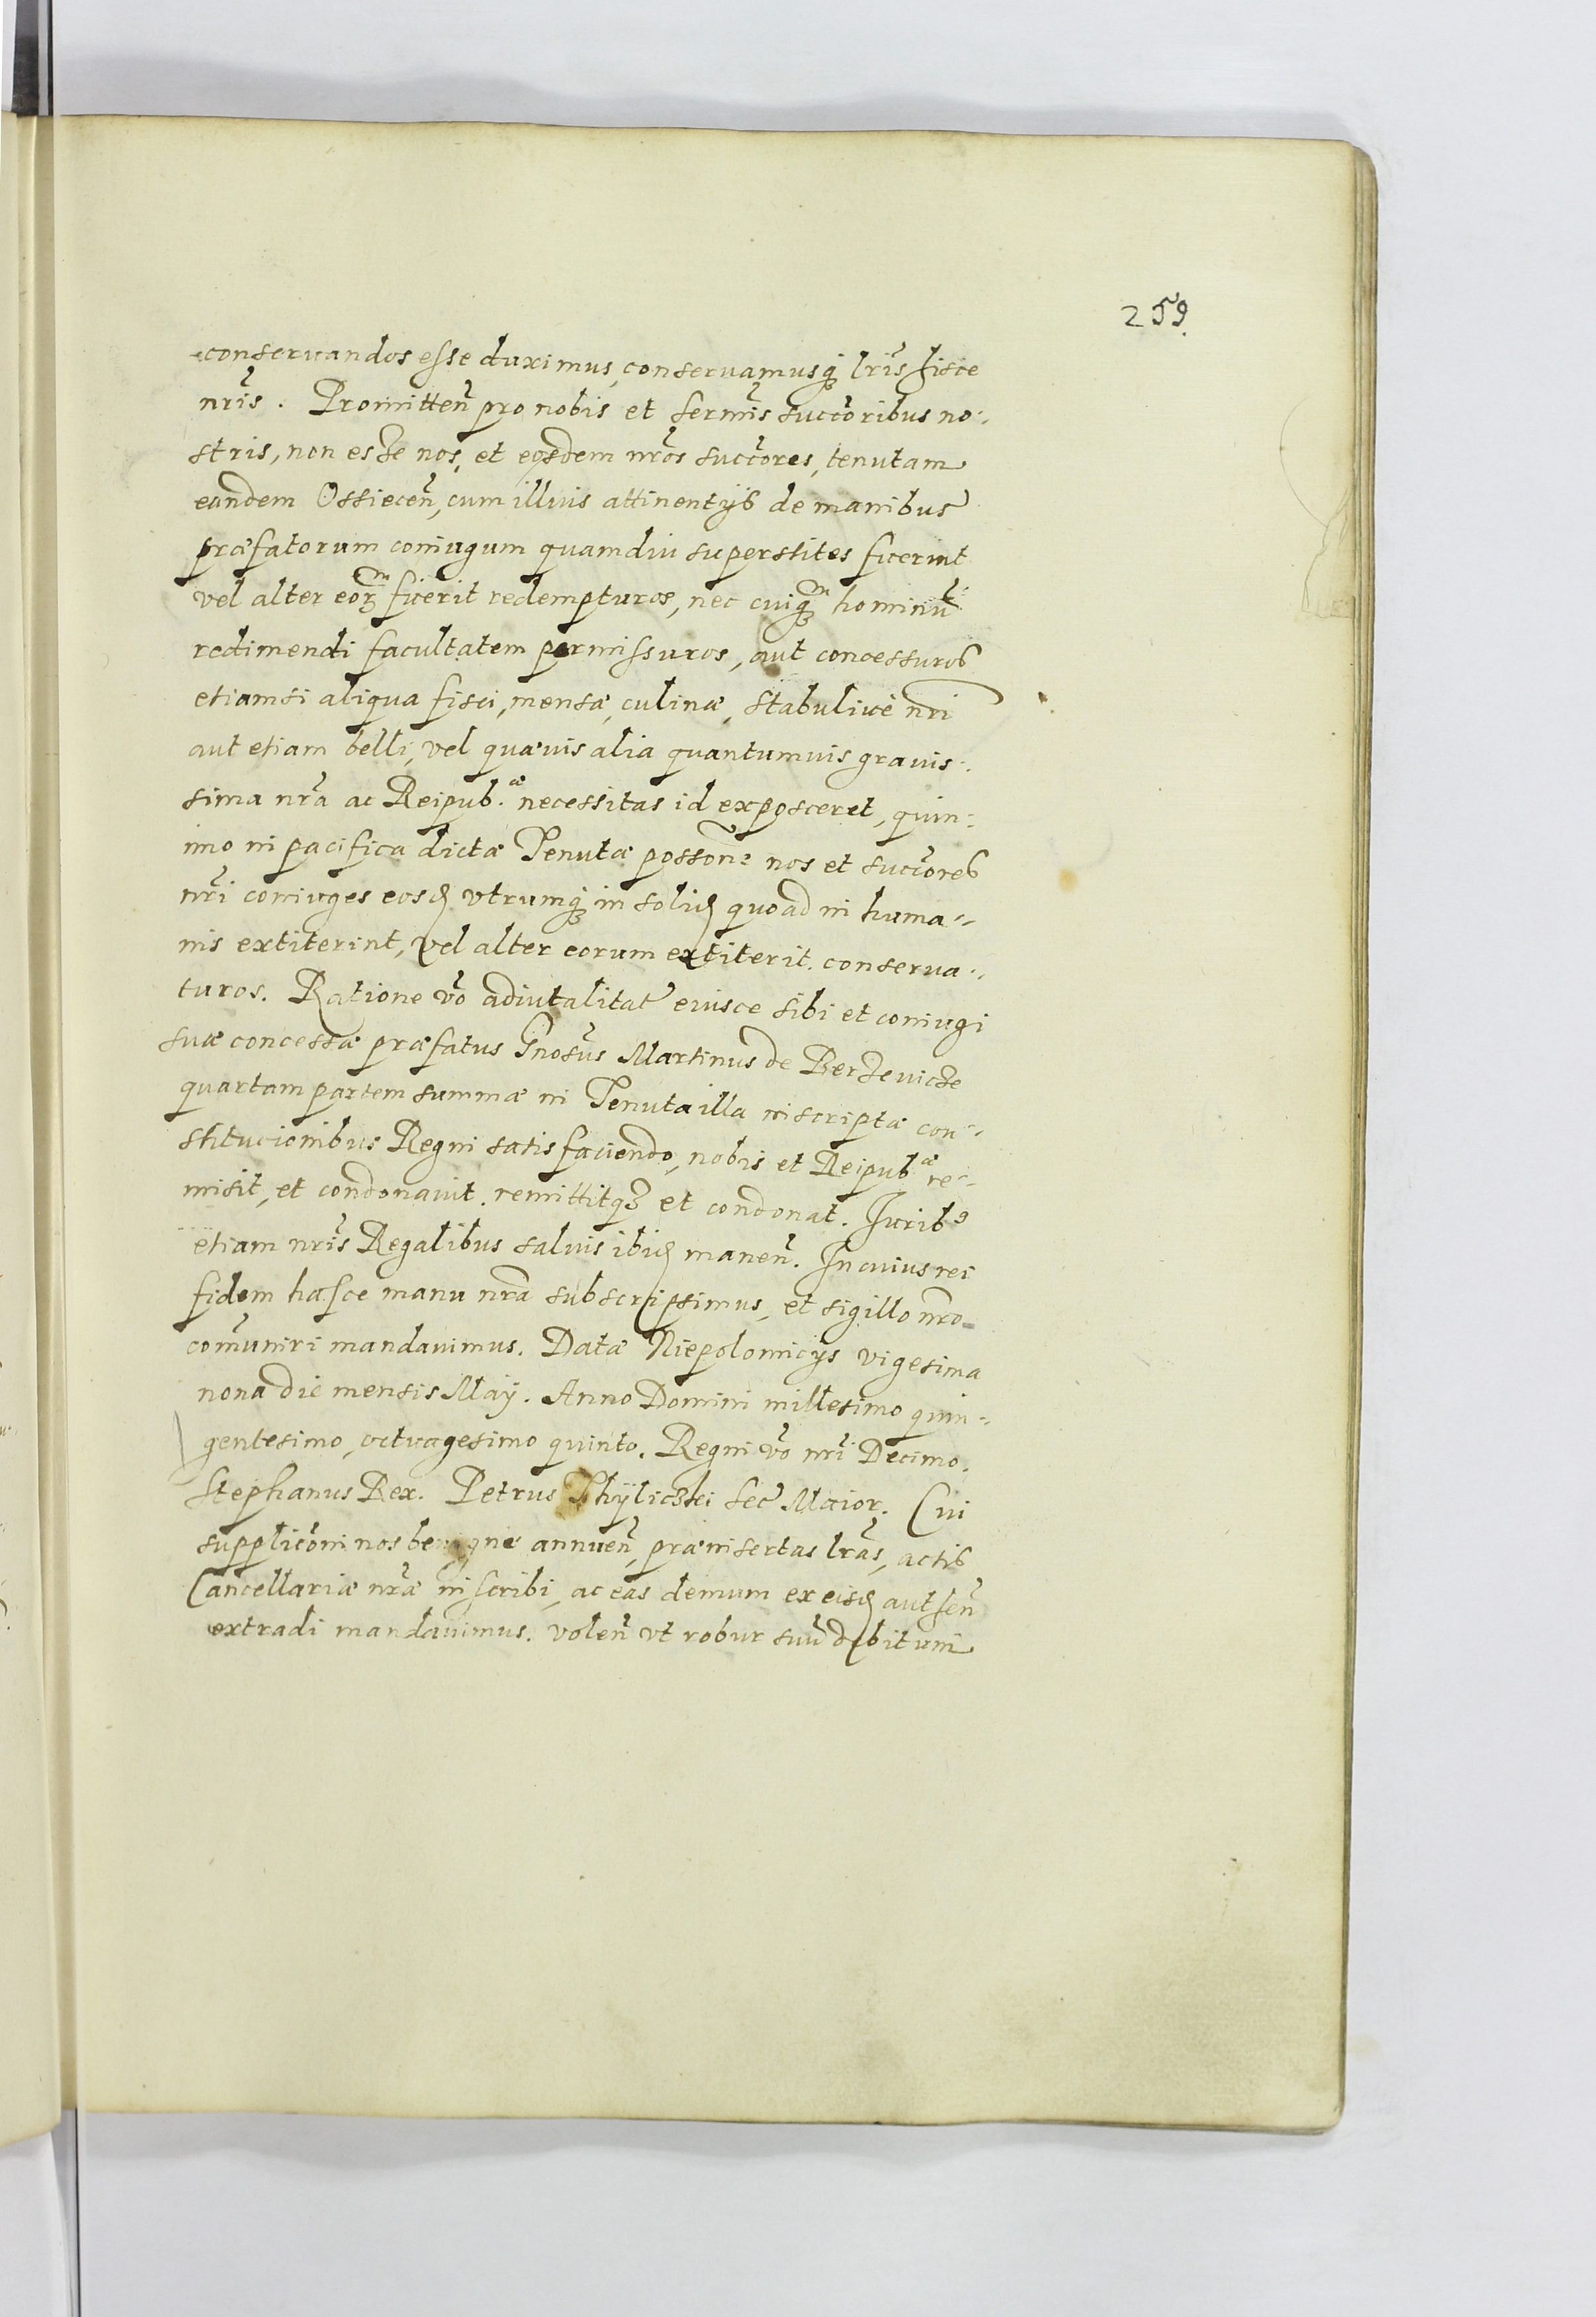 259.
conseruandos esse duximus, conseruamusq lris hisce
nris. Promitten pro nobis et sermis succoribus no-
stris, non esse nos, et eosdem nros succores, tenutam
eandem Ossiecen, cum illius attinentijs de manibus
præfatorum coniugum quamdiu superstites fuerint
vel alter eor fuerit redempturos, nec cuiqm hominu
redimendi facultatem permissuros, aut concessuros
etiamsi aliqua fisci, mensæ, culinæ, stabuliue nri
aut etiam belli, vel quæuis alia quantumuis grauis-
sima nra ac Reipub.æ necessitas id exposceret, quin-
imo in pacifica dictæ Tenutæ possone nos et succores
nri coniuges eosd vtrumq in solid quoad in huma-
nis extiterint, vel alter eorum extiterit. conserua-
turos. Ratione vo aduitalitat eiusce sibi et coniugi
suæ concessæ præfatus Gnosus Martinus de Berzeuicze
quartam partem summæ in Tenuta illa inscriptæ con-
stitucionibus Regni satisfaciendo, nobis et Reipubæ re-
misit, et condonauit. remittitq et condonat. Iurib9
etiam nris Regalibus saluis ibid manen. In cuius rei
fidem hasce manu nra subscripsimus, et sigillo nro
comuniri mandauimus. Datæ Niepolomicijs vigesima
nona die mensis Maij. Anno Domini millesimo quin-
gentesimo, octuagesimo quinto. Regni vo nri Decimo.
Stephanus Rex. Petrus Thÿliczki Sec Maior. Cui
suppliconi nos benigne annuen, præinsertas lras, actis
Cancellariæ nræ inscribi, ac eas demum ex eisd autsen
extradi mandauimus. volen vt robur suu debitum